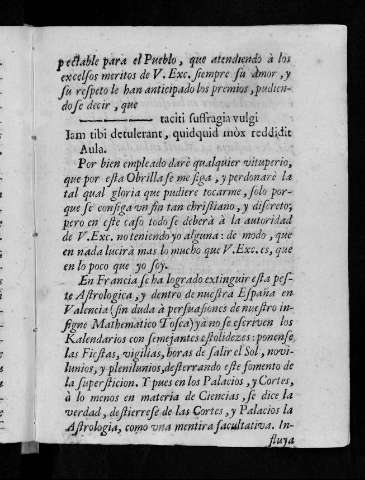 pectable para el Pueblo, que atendiendo à los
excelsos meritos de V. Exc. siempre su amor, y
su respeto le han anticipado los premios, pudien-
dose decir, que
taciti suffragia vulgi
Iam tibi detulerant, quidquid mòx reddidit
Aula.
Por bien empleado darè qualquier vituperio,
que por esta Obrilla se me siga, y perdonarè la
tal qual gloria que pudiere tocarme, solo por-
que se consiga un fin tan christiano, y discreto;
pero en este caso todo se deberà à la autoridad
de V. Exc. no teniendo yo alguna: de modo, que
en nada lucirà mas lo mucho que V. Exc. es, que
en lo poco que yo soy.
En Francia se ha logrado extinguir esta pes-
te Astrologica, y dentro de nuestra España en
Valencia (sin duda à persuasiones de nuestro in-
signe Mathematico Tosca) yà no se escriven los
Kalendarios con semejantes estolidezes: ponense
las Fiestas, vigilias, horas de salir el Sol, novi-
lunios, y plenilunios, desterrando este fomento de
la supersticion. Y pues en los Palacios, y Cortes,
à lo menos en materia de Ciencias, se dice la
verdad, destierrese de las Cortes, y Palacios la
Astrologia, como una mentira facultativa. In-
fluya